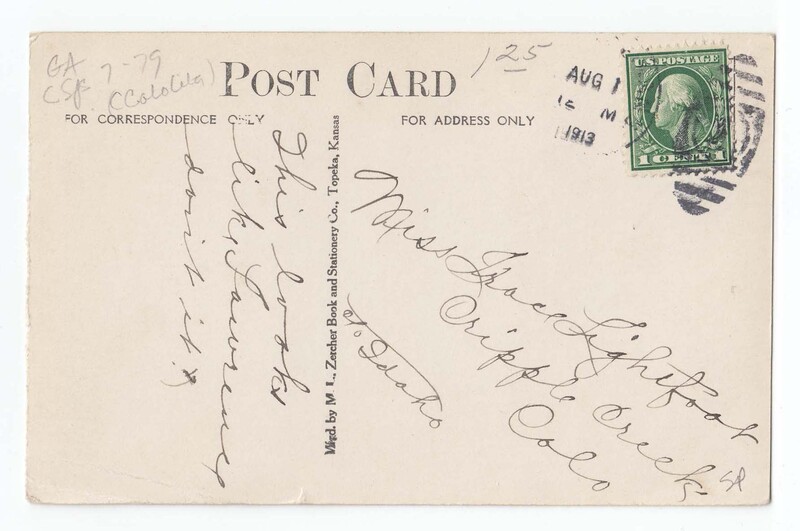 GA
CSfs 7-79
(Cololela)
POST CARD
125
FOR CORRESPONDENCE ONLY
FOR ADDRESS ONLY
AUG 1
M
1913
U.S.POSTAGE
1 CENT 1
This looks
like Lawrence
don't it?
Mfgd. by M. L. Zercher Book and Stationery Co., Topeka, Kansas
Miss Grace Lightfoot
Cripple Creek
Colo
Idaho